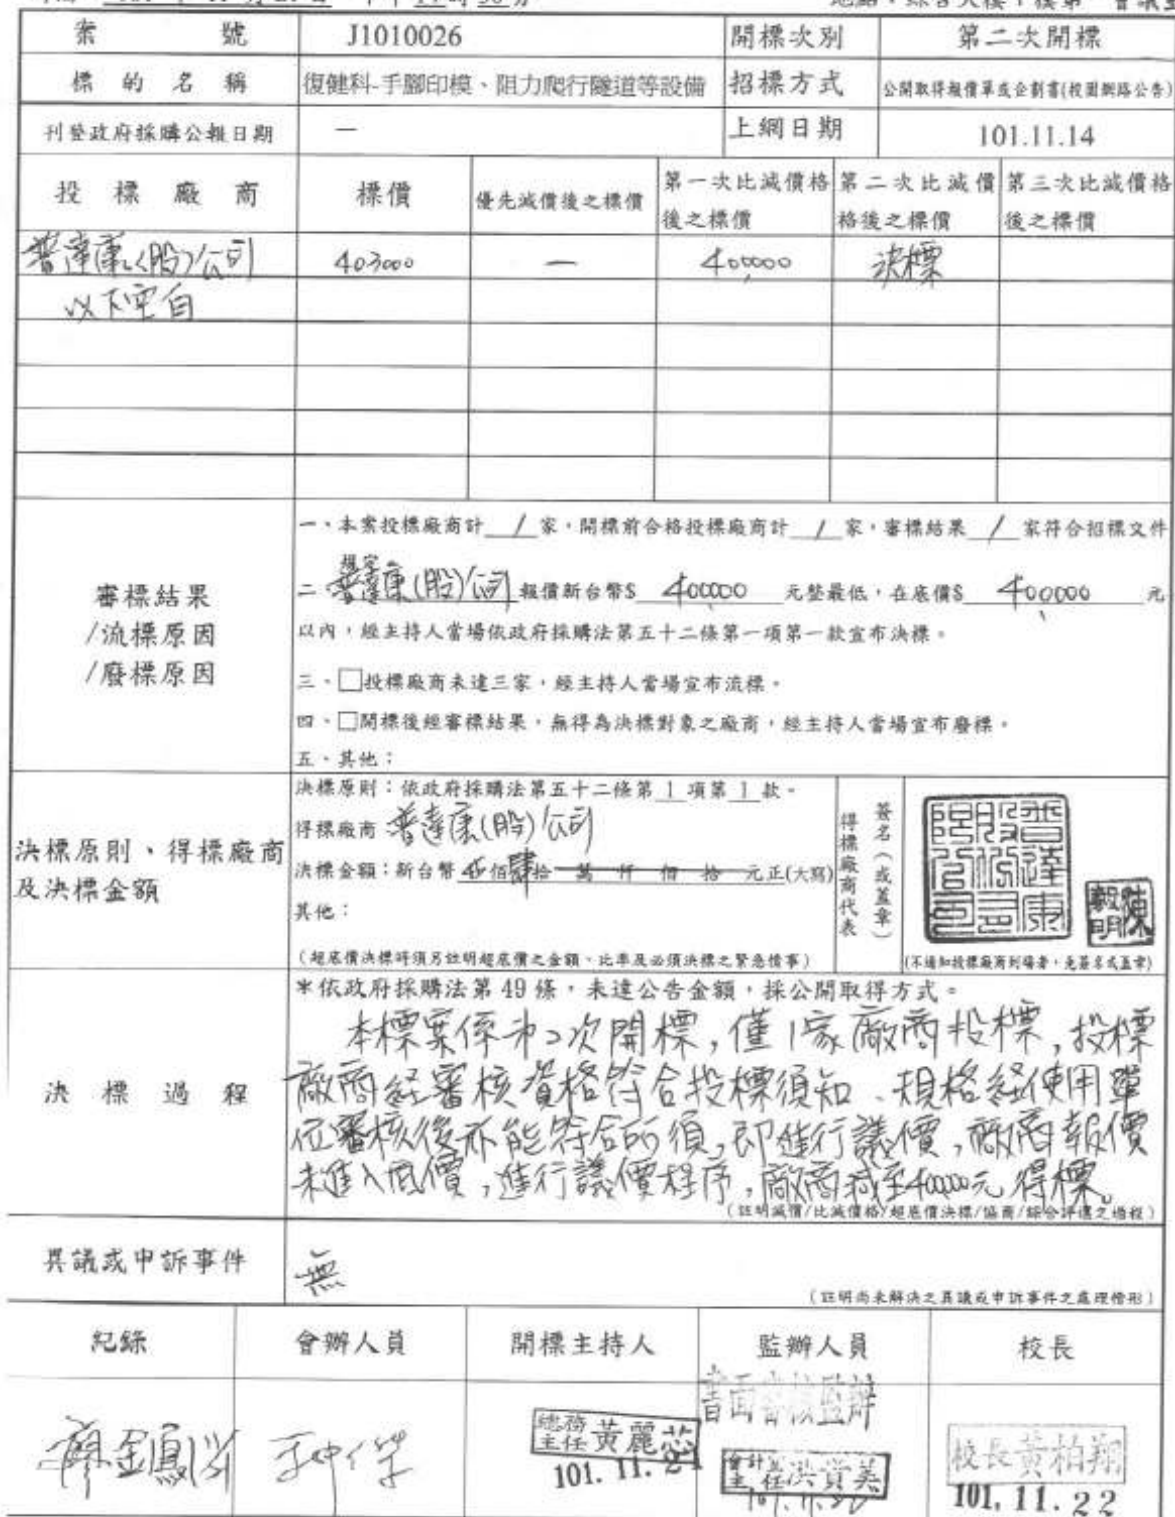 案號 J1010026 開標次別 第二次開標
標的名稱 復健科-手腳印模、阻力爬行隧道等設備 招標方式 公開取得報價單或企劃書(校園網路公告)
刊登政府採購公報日期 — 上網日期 101.11.14
投標廠商 標價 優先減價後之標價 第一次比減價格後之標價 第二次比減價格後之標價 第三次比減價格後之標價
普達康(股)公司 403000 — 400,000 決標
以下空白
審標結果
/流標原因
/廢標原因
一、本案投標廠商計 1 家,開標前合格投標廠商計 1 家,審標結果 1 家符合招標文件
規定
二、普達康(股)公司 報價新台幣$ 400,000 元整最低,在底價$ 400,000 元
以內,經主持人當場依政府採購法第五十二條第一項第一款宣布決標。
三、□投標廠商未達三家,經主持人當場宣布流標。
四、□開標後經審標結果,無得為決標對象之廠商,經主持人當場宣布廢標。
五、其他:
決標原則、得標廠商
及決標金額
決標原則:依政府採購法第五十二條第 1 項第 1 款。
得標廠商 普達康(股)公司
決標金額:新台幣 佰肆拾 萬 仟 佰 拾 元正(大寫)
其他:
(超底價決標時須另註明超底價之金額、比率及必須決標之緊急情事)
得標廠商代表
簽名(或蓋章)
普達康股份有限公司
陳毅明
(不通知投標廠商到場者,免簽名或蓋章)
決標過程
*依政府採購法第 49 條,未達公告金額,採公開取得方式。
本標案係第2次開標,僅1家廠商投標,投標
廠商經審核資格符合投標須知、規格經使用單
位審核後亦能符合所須,即進行議價,廠商報價
未進入底價,進行議價程序,廠商減至400,000元得標。
(註明減價/比減價格/超底價決標/協商/綜合評選之過程)
異議或申訴事件 無
(註明尚未解決之異議或申訴事件之處理情形)
紀錄 會辦人員 開標主持人 監辦人員 校長
書面審核監辦
總務主任 黃麗芯
101. 11. 21
會計主任 洪賞美
校長 黃柏翔
101. 11. 22